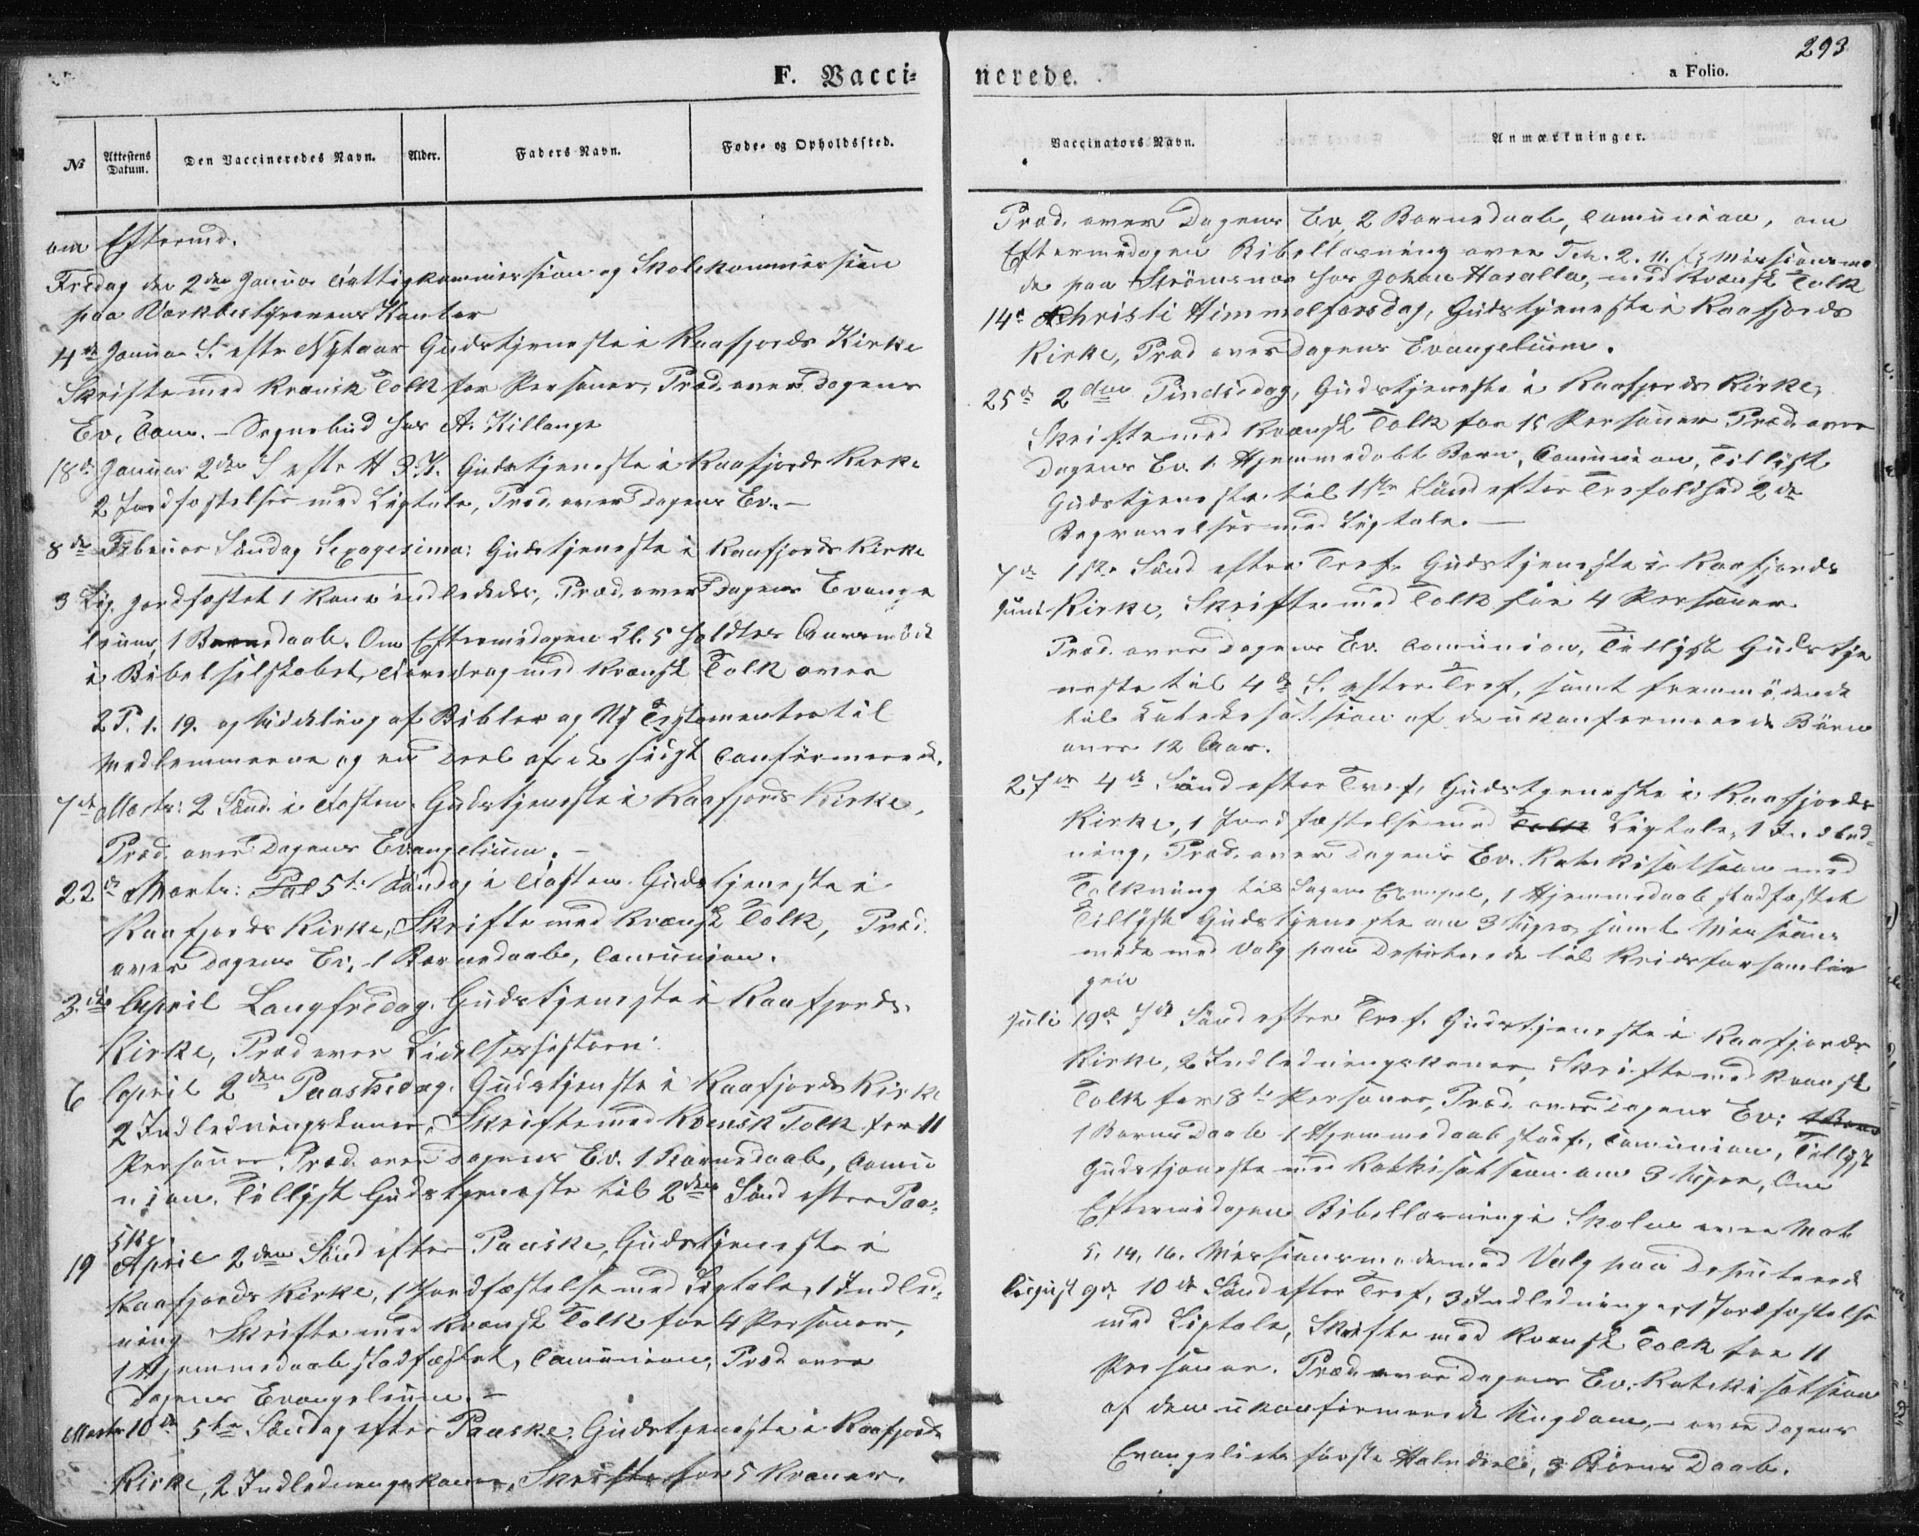 F. Vacci-
No
Attestens Datum.
Den Vaccineredes Navn.
Alder.
Faders Navn.
Føde- og Opholdssted.
om Eftermd.
Fredag den 2den Januar Fattigkommission og Skolekommission
paa Værkbestyrerens Kontor
4de Januar S. eftr Nytaar Gudstjeneste i Kaafjords Kirke
Skrifte med Kvænsk Tolk for Personer, Præd. over Dagens
Ev. Com. – Sognebud hos A. Killange
18de Januar 2den S eftr H 3 K. Gudstjeneste i Kaafjords Kirke
2 Jordfæstelser med Ligtale, Præd. over Dagens Ev. –
8de Februar Søndag Sexagesima: Gudstjeneste i Kaafjords Kirke
3 Lig jordfæstet 1 Kone indledede, Præd. over Dagens Evange
lium, 1 Barnedaab. Om Eftermidagen Kl. 5 holdtes Aarsmøde
i Bibelselskabet, Foredrag med Kvænsk Tolk over
2 P. 1. 19. og Uddeling af Bibler og Ny Testamenter til
Medlemmerne og en Deel af de sidst Confirmerede.
7de Marts: 2 Sønd. i Fasten. Gudstjeneste i Kaafjords Kirke,
Præd. over Dagens Evangelium. –
22de Marts: 5te Søndag i Fasten. Gudstjeneste i
Kaafjords Kirke, Skrifte med Kvænsk Tolk, Præd.
over Dagens Ev. 1 Barnedaab, Comunion.
3die April Langfredag. Gudstjeneste i Kaafjords
Kirke, Præd over Lidelseshistorien.
6 April 2den Paaskedag. Gudstjeneste i Kaafjords Kirke
2 Indledningskoner, Skrifte med Kvensk Tolk for 11
Personer Præd. over Dagens Ev. 1 Barnedaab, Comu
nion. Tillyst Gudstjeneste til 2den Sønd efter Paa-
ske.
19 April 2den Sønd efter Paaske, Gudstjeneste i
Kaafjords Kirke, 1 Jordfæstelse med Ligtale, 1 Indled-
ning Skrifte med Kvænsk Tolk for 4 Personer,
1 Hjemmedaab stadfæstet, Comunion, Præd over
Dagens Evangelium. –
Marts 10de 5te Søndag efter Paaske. Gudstjeneste i Kaafjords
Kirke, 2 Indledningskoner, Skrifte for 5 Kvæner.
293
nerede.
a Folio.
Vaccinators Navn.
Anmærkninger.
Præd. over Dagens Ev, 2 Barnedaab, Comunion, om
Eftermidagen Bibellæsning over Missionsmø
de paa Strømsnæs hos Johan Haralla, med Kvænsk Tolk
14de Christi Himmelfarsdag, Gudstjeneste i Kaafjords
Kirke, Præd over Dagens Evangelium.
25de 2den Pindsedag, Gudstjeneste i Kaafjords Kirke,
Skrifte med Kvænsk Tolk for 15 Personer Præd. over
Dagens Ev. 1 Hjemmedøbt Barn, Comunion, Tillyst
Gudstjeneste til 1ste Sønd efter Trefoldhed 2de
Begravelser med Ligtale. –
7de 1ste Sønd efter Tref. Gudstjeneste i Kaafjords
Juni Kirke, Skrifte med Tolk for 4 Personer
Præd. over Dagens Ev. Comunion, Tillyst Gudstje
neste til 4de S. efter Tref, samt fremmødende
til Katekisatsion af de ukonfirmerede Børn
over 12 Aar.
27de 4de Sønd efter Tref, Gudstjeneste i Kaafjords
Kirke, 1 Jordfæstelse med Tolk Ligtale, 1 Indled-
ning, Præd. over Dagens Ev. Katekisatsion med
Tolkning til Dagens Exempel, 1 Hjemmedaab stadfæstet
Tillyst Gudstjeneste om 3 Uger, samt Missions
møde med Valg paa Deputerede til Kredsforsamlin
gen
Juli 19de 7de Sønd efter Tref. Gudstjeneste i Kaafjords
Kirke, 2 Indledningskoner, Skrifte med Kvænsk
Tolk for 8te Personer, Præd. over Dagens Ev.
1 Barnedaab 1 Hjemmedaab stadf., Comunion, Tillyst
Gudstjeneste med Katekisatsion om 3 Uger, Om
Eftermidagen Bibellæsning i Skolen over Mat
5, 14, 16. Missionsmøde med Valg paa Deputerede
August 9de 10de Sønd efter Tref, 3 Indledninger, 1 Jordfæstelse
med Ligtale, Skrifte med Kvænsk Tolk for 11
Personer. Præd. over Dagens Ev. Katekisatsion
af den ukonfirmerede Ungdom, – over Dagens
Evangeliets første Halvdeel, 3 Børns Daab.